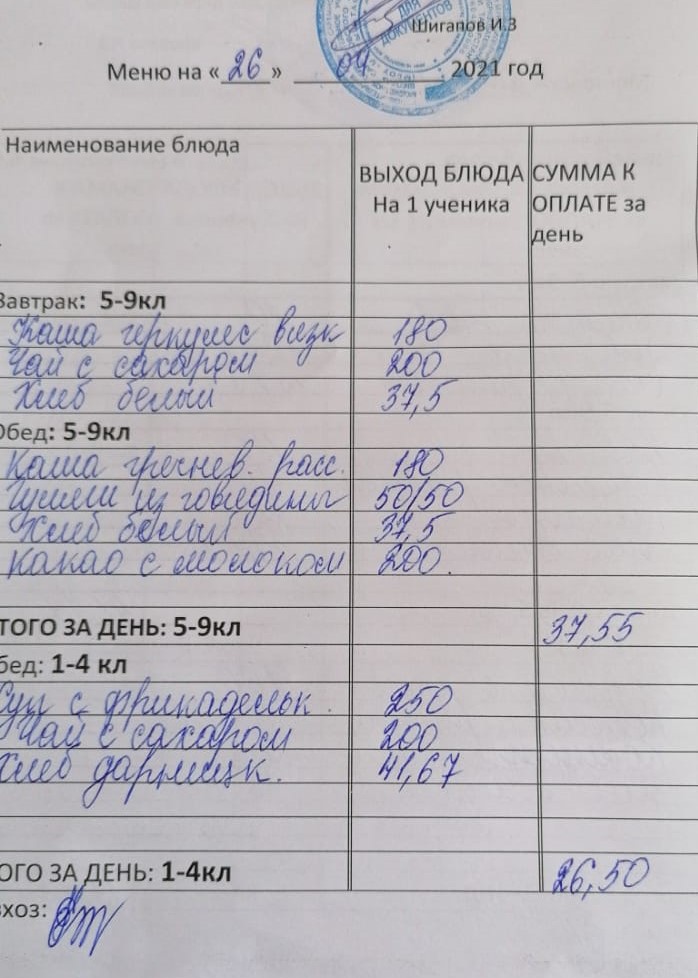 ДЛЯ
ДОКУМЕНТОВ
Шигапов И.З
Меню на « 26 » 04 2021 год
Наименование блюда
ВЫХОД БЛЮДА
На 1 ученика
СУММА К
ОПЛАТЕ за
день
Завтрак: 5-9кл
Каша геркулес вязк 180
Чай с сахаром 200
Хлеб белый 37,5
Обед: 5-9кл
Каша гречнев. расс. 180
Гуляш из говядины 50/50
Хлеб белый 37,5
Какао с молоком 200
ТОГО ЗА ДЕНЬ: 5-9кл 37,55
бед: 1-4 кл
Суп с фрикадельк. 250
Чай с сахаром 200
Хлеб дарницк. 41,67
ОГО ЗА ДЕНЬ: 1-4кл 26,50
вхоз: